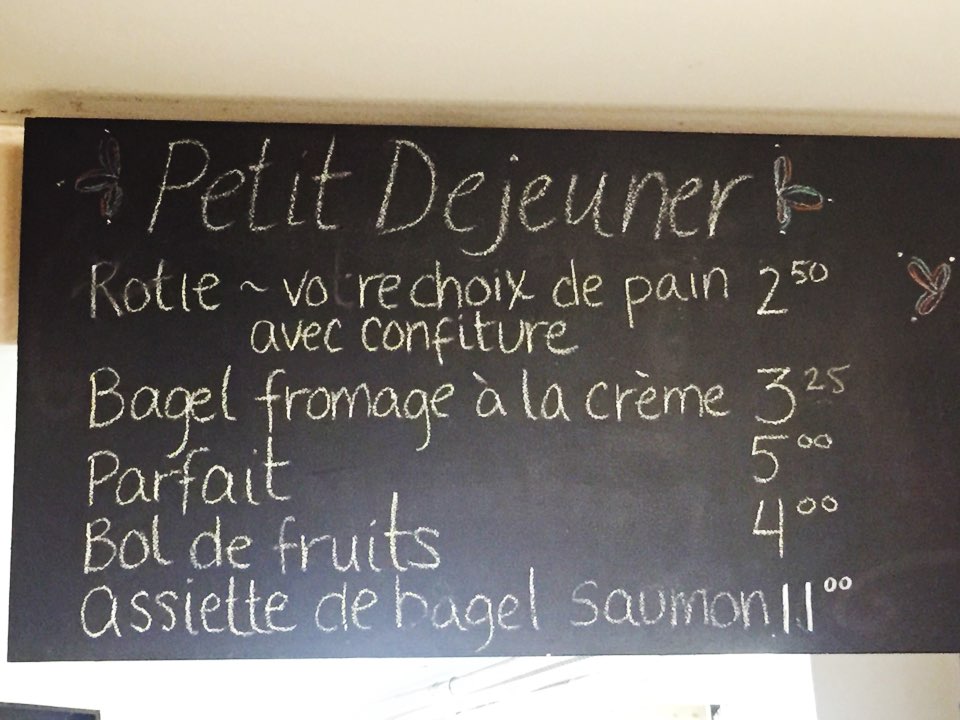 Petit Dejeuner
Rotie ~ votre choix de pain 2 50
avec confiture
Bagel fromage à la crème 3 25
Parfait 5 00
Bol de fruits 4 00
assiette de bagel saumon 11 00